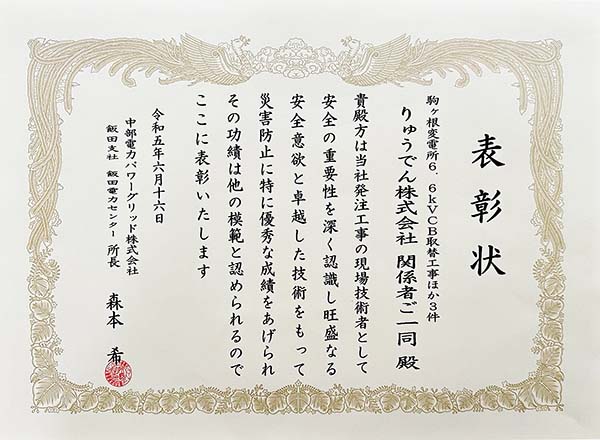 表彰状
駒ヶ根変電所6．6kVCB取替工事ほか3件
りゅうでん株式会社 関係者ご一同 殿
貴殿方は当社発注工事の現場技術者として
安全の重要性を深く認識し旺盛なる
安全意欲と卓越した技術をもって
災害防止に特に優秀な成績をあげられ
その功績は他の模範と認められるので
ここに表彰いたします
令和五年六月十六日
中部電力パワーグリッド株式会社
飯田支社 飯田電力センター 所長
森本 希